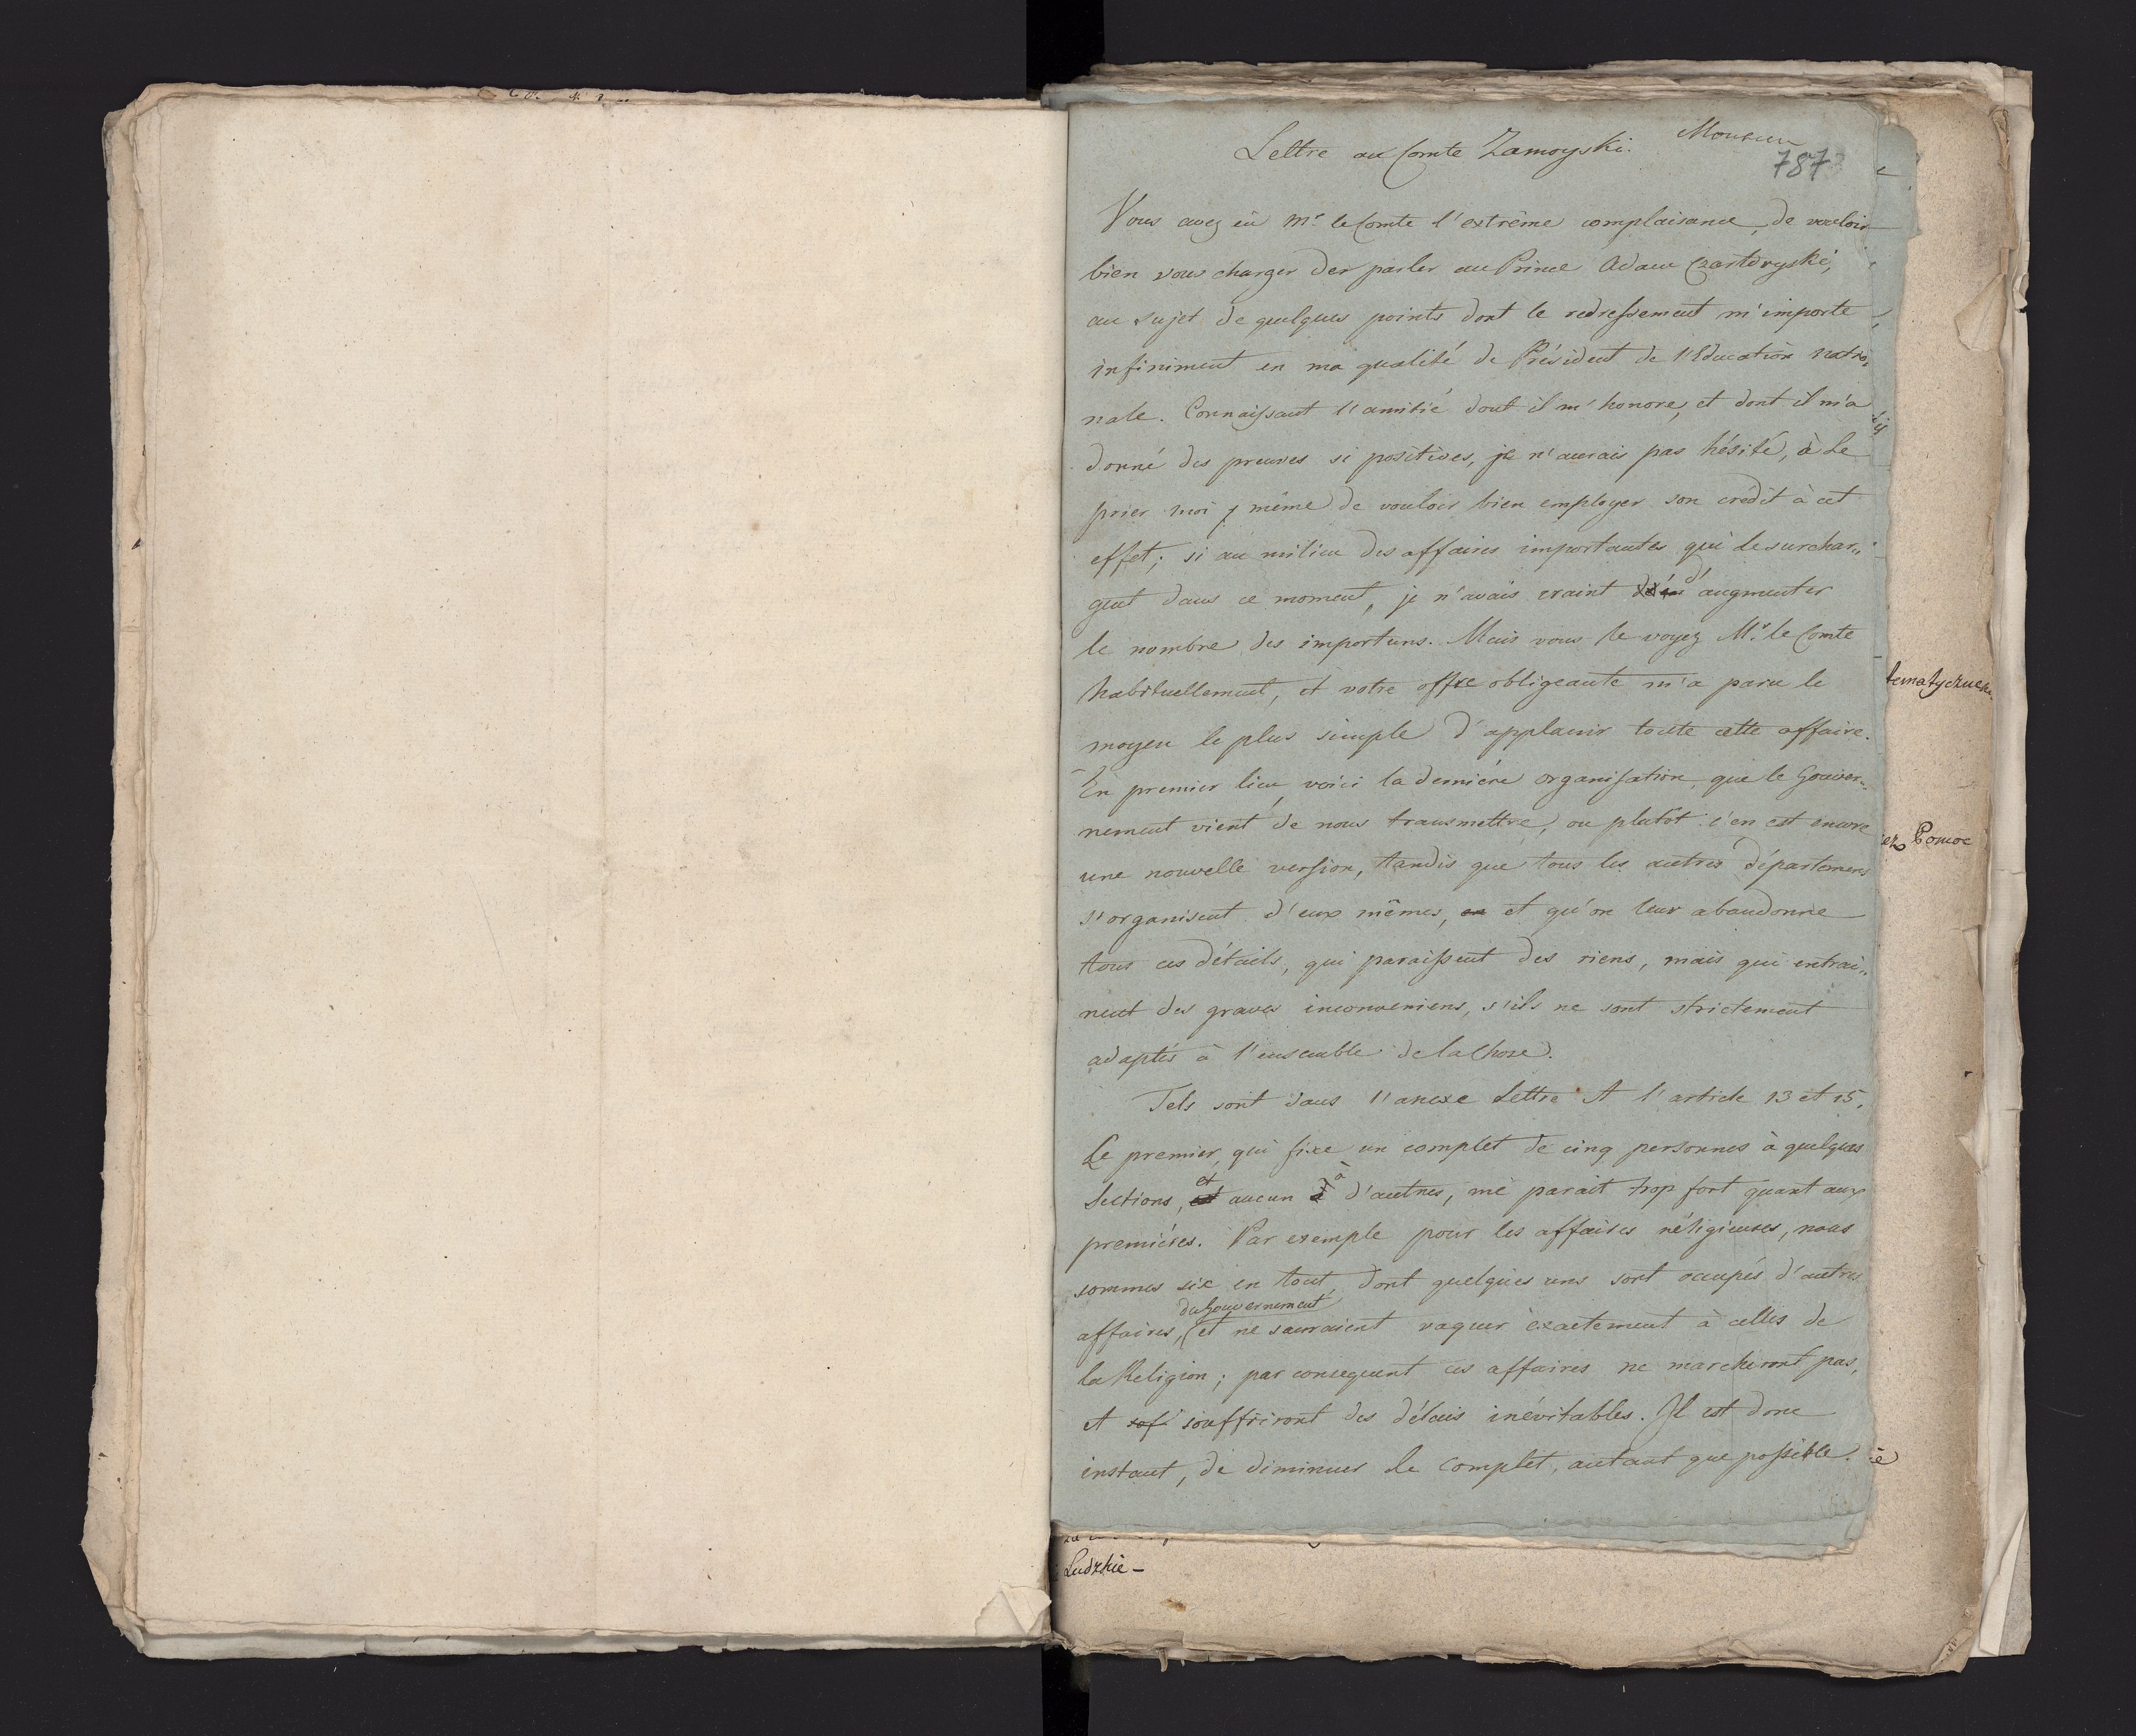 Lettre au Comte Zamoyski. Monsieur
787
Vous avez eù Mr le Comte l'extrème complaisance, de vouloir
bien vous charger de parler au Prince Adam Czartoryski,
au sujet de quelques points dont le redressement m'importe
infiniment en ma qualité de Président de l'Education Natio„
nale. Connaissant l'amitié dont il m'honore, et dont il m'a
donné des preuves si positives, je n'aurais pas hésité, à le
prier moi même de vouloir bien employer son crédit à cet
effet; si au milieu des affaires importantes qui le surchar„
gent dans ce moment, je n'avais craint d'augmenter
le nombre des importuns. Mais vous le voyez Mr. le Comte
habituellement, et votre offre obligeante m'a paru le
moyen le plus simple d'applanir toute cette affaire.
En premier lieu, voici la derniére organisation, que le Gouver„
nement vient de nous transmettre, ou plutot c'en est encore
une nouvelle version, tandis que tous les autres départemens
s'organisent d'eux mêmes, en et qu'on leur abandonne
tous ces détails, qui paraissent des riens, mais qui entrai„
nent des graves inconveniens, s'ils ne sont strictement
adaptés à l'ensemble de la Chose.
Tels sont dans l'anexe Lettre A l'article 13 et 15,
Le premier, qui fixe un complet de cinq personnes à quelques
Sections, et aucun à d'autres, me parait trop fort quant aux
premiéres. Par exemple pour les affaires réligieuses, nous
sommes six en tout, dont quelques uns sont occupés d'autres
du Gouvernement
affaires, (et ne sauraient vaquer exactement à celles de
la Religion; par consequent ces affaires ne marcheront pas,
et souffriront des délais inévitables. Il est donc
instant, de diminuer le complet, autant que possible.
tematyczne
Pomoc
Ludzkie -